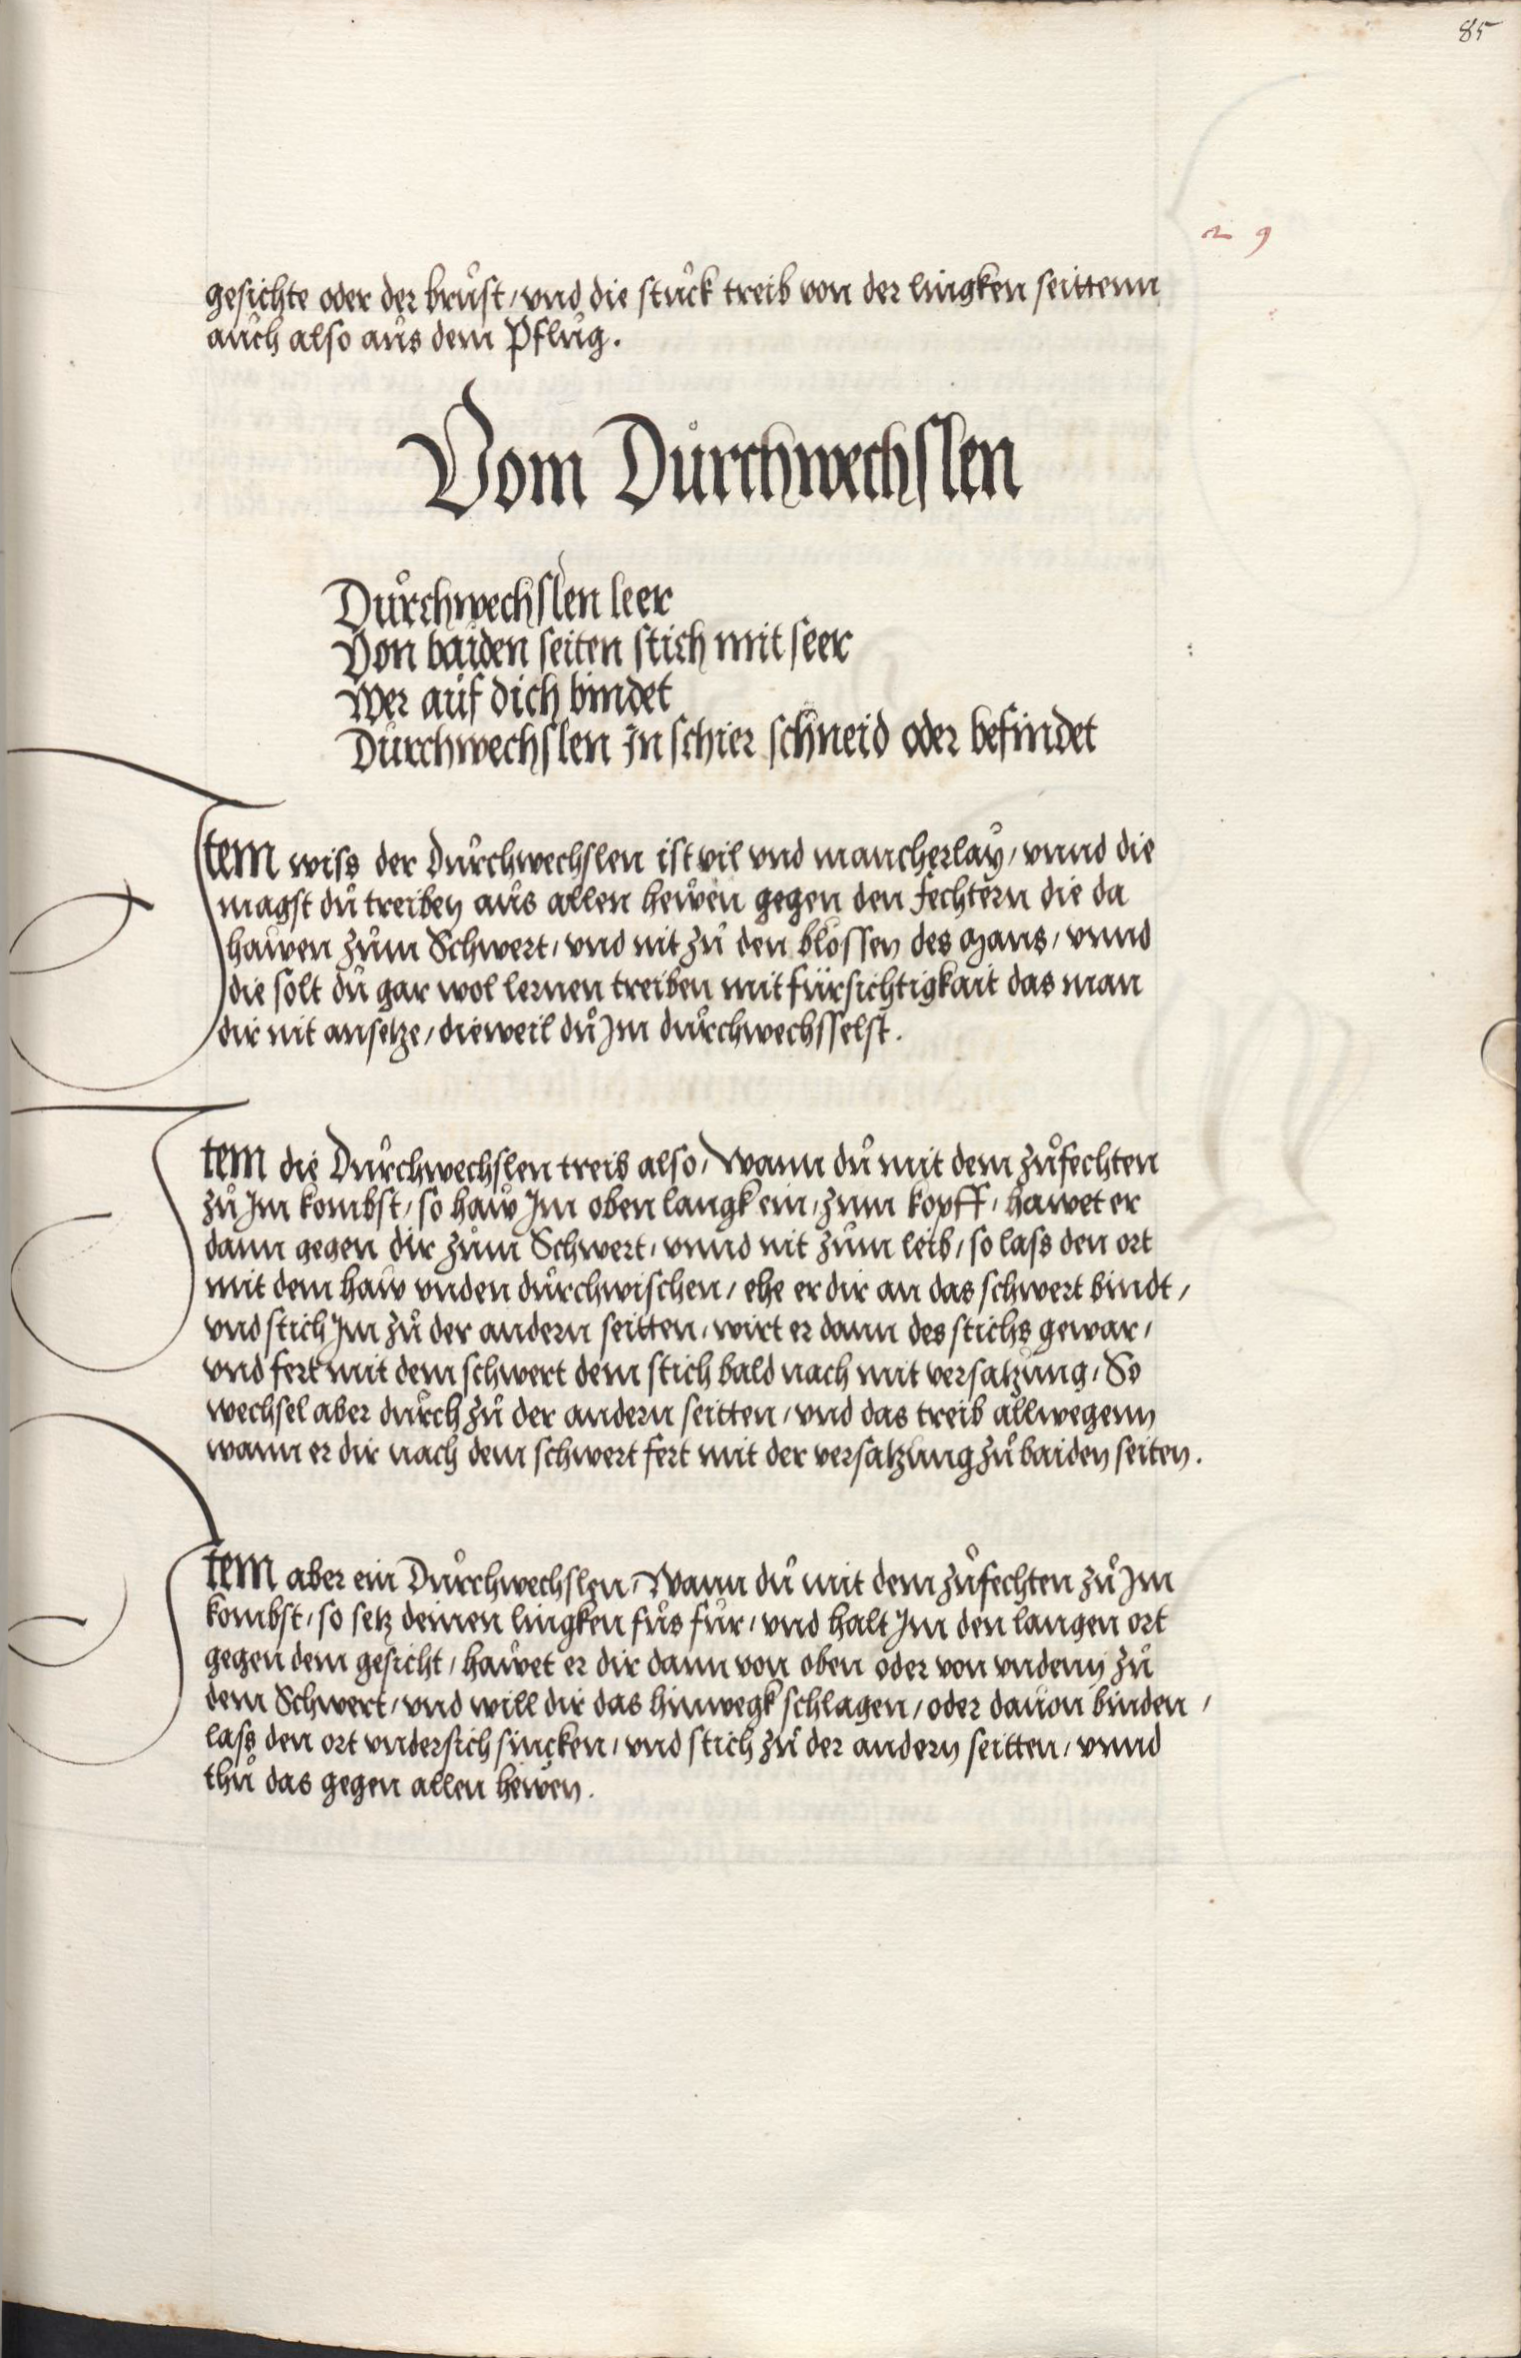 85
gesichte oder der brůst / vnd die stůck treib von der lingken seittenn
aůch also aůs dem Pflůg.
Vom Důrchwechslen
Důrchwechslen leer
Von baiden seiten stich mit seer
Wer aůf dich bindet
Důrchwechslen In schier schneid oder befindet
Item wiss der Důrchwechslen ist vil vnd mancherlaÿ / vnnd die
magst dů treiben aůs allen hewen gegen den Fechtern die da
hawen zům Schwert / vnd nit zů den blossen des Mans / vnnd
die solt dů gar wol lernen treiben mit fürsichtigkait das man
dir nit ansetze / dieweil dů Im důrchwechsselst.
Item die Důrchwechslen treib also / Wann dů mit dem zůfechten
zů Im kombst / so haw Im oben langk ein / zům kopff / hawet er
dann gegen dir zům Schwert / vnnd nit zům leib / so lass den ort
mit dem haw vnden důrchwischen / ehe er dir an das schwert bindt /
vnd stich Im zů der andern seitten / wirt er dann des stichs gewar /
vnd fert mit dem schwert dem stich bald nach mit versatzůng / So
wechsel aber důrch zů der andern seitten / vnd das treib allwegenn
wann er dir nach dem schwert fert mit der versatzůng zů baiden seiten.
Item aber ein Důrchwechslen / Wann dů mit dem zůfechten zů Im
kombst / so setz deinen lingken fůs für / vnd halt Im den langen ort
gegen dem gesicht / hawet er dir dann von oben oder von vndenn zů
dem Schwert / vnd will dir das hinwegk schlagen / oder dauon binden /
lass den ort vndersich sincken / vnd stich zů der andern seitten / vnnd
thů das gegen allen hewen.